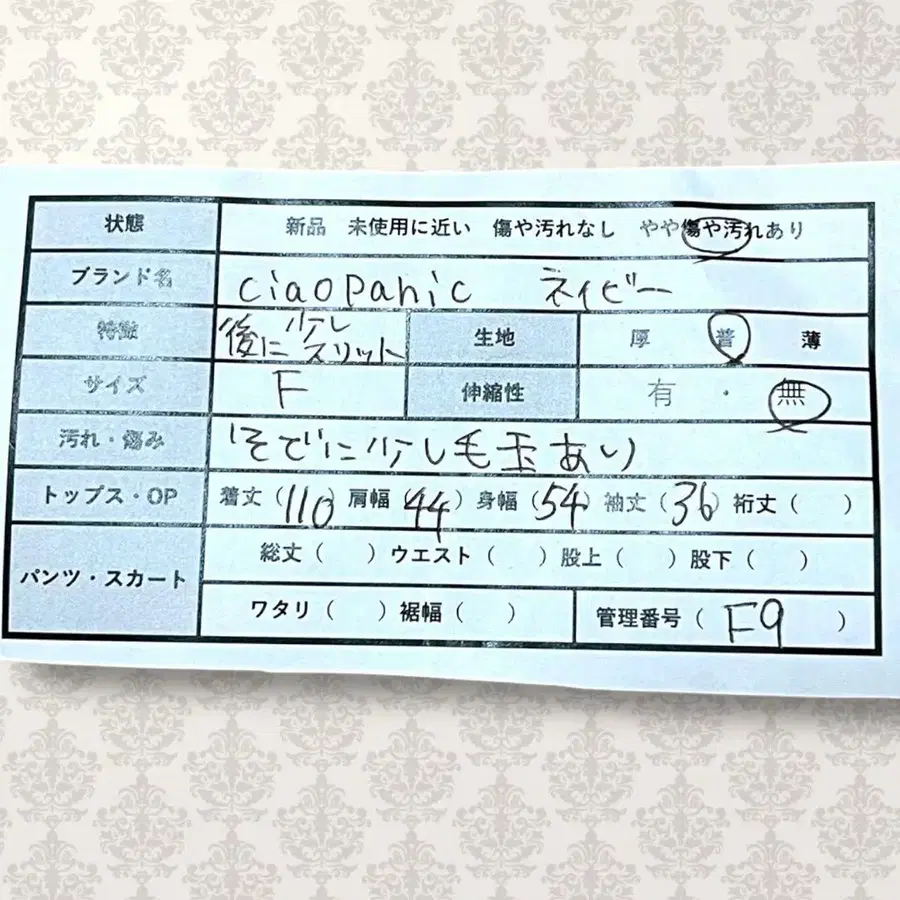 状態 新品 未使用に近い 傷や汚れなし やや傷や汚れあり
ブランド名 ciaopanic ネイビー
特徴 後に少しスリット 生地 厚 普 薄
サイズ F 伸縮性 有 ・ 無
汚れ・傷み そでに少し毛玉あり
トップス・OP 着丈(110) 肩幅(44) 身幅(54) 袖丈(36) 裄丈( )
パンツ・スカート 総丈( ) ウエスト( ) 股上( ) 股下( )
ワタリ( ) 裾幅( ) 管理番号( F9 )